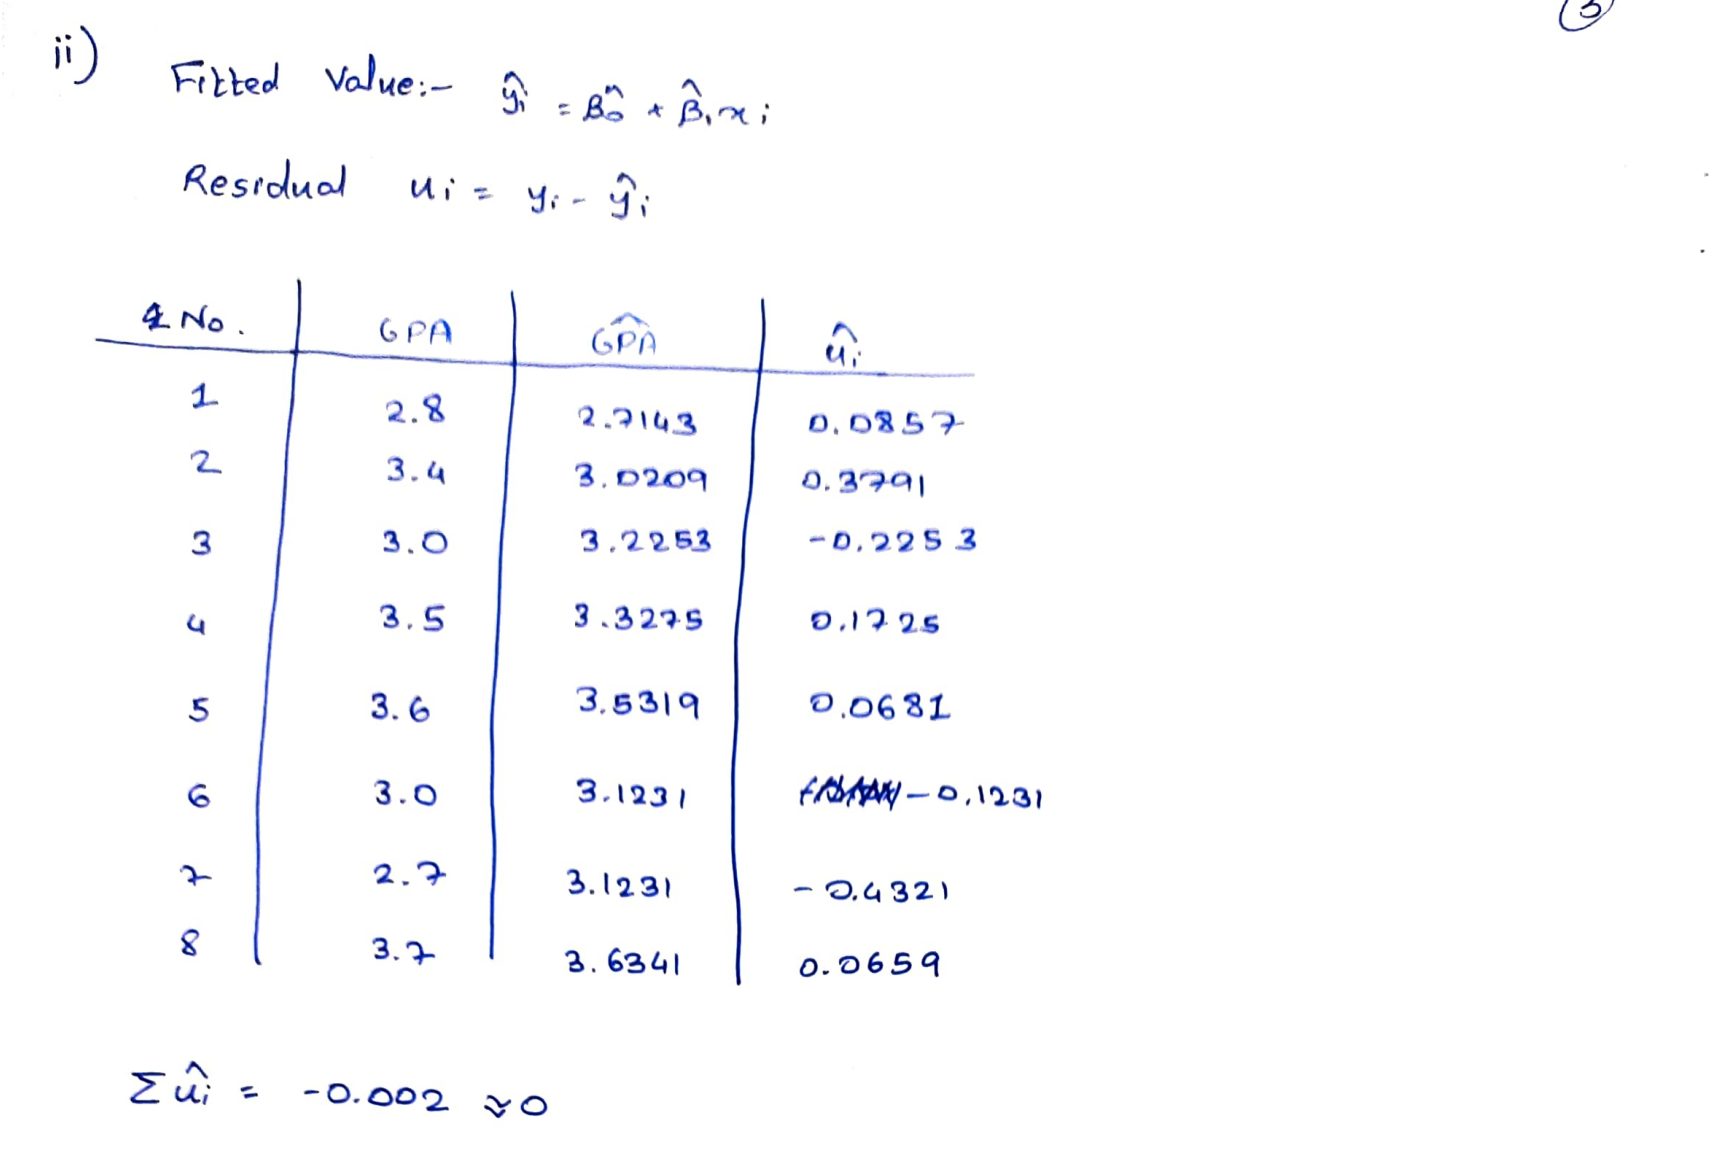 3
ii) Fitted Value:- ŷi = β̂0 + β̂1xi
Residual ui = yi - ŷi
No. GPA GPÂ ûi
1 2.8 2.7143 0.0857
2 3.4 3.0209 0.3791
3 3.0 3.2253 -0.2253
4 3.5 3.3275 0.1725
5 3.6 3.5319 0.0681
6 3.0 3.1231 -0.1231
7 2.7 3.1231 -0.4321
8 3.7 3.6341 0.0659
Σûi = -0.002 ≈0